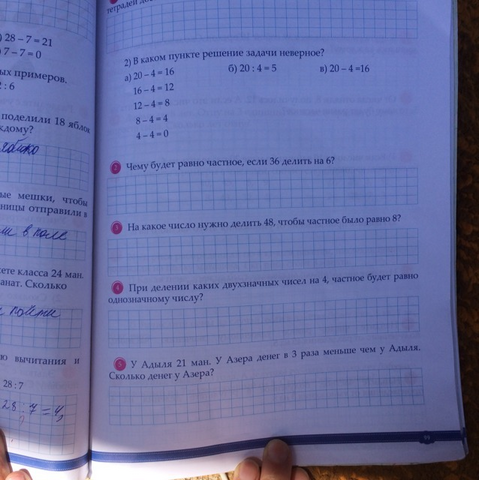 ) 28 – 7 = 21
7 – 7 = 0
ых примеров.
: 6
поделили 18 яблок
ждому?
яблоко
ые мешки, чтобы
ницы отправили в
в поле
ете класса 24 ман.
анат. Сколько
пойти
ю вычитания и
28 : 7
28 : 7 = 4,
тетрадей
2) В каком пункте решение задачи неверное?
а) 20 – 4 = 16 б) 20 : 4 = 5 в) 20 – 4 =16
16 – 4 = 12
12 – 4 = 8
8 – 4 = 4
4 – 4 = 0
2 Чему будет равно частное, если 36 делить на 6?
3 На какое число нужно делить 48, чтобы частное было равно 8?
4 При делении каких двухзначных чисел на 4, частное будет равно
однозначному числу?
5 У Адыля 21 ман. У Азера денег в 3 раза меньше чем у Адыля.
Сколько денег у Азера?